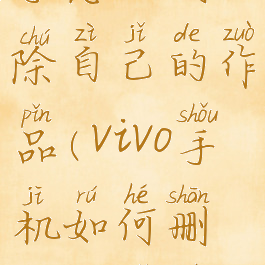 chú zì jǐ de zuò
除自己的作
pǐn shǒu
品(vivo手
jī rú hé shān
机如何删